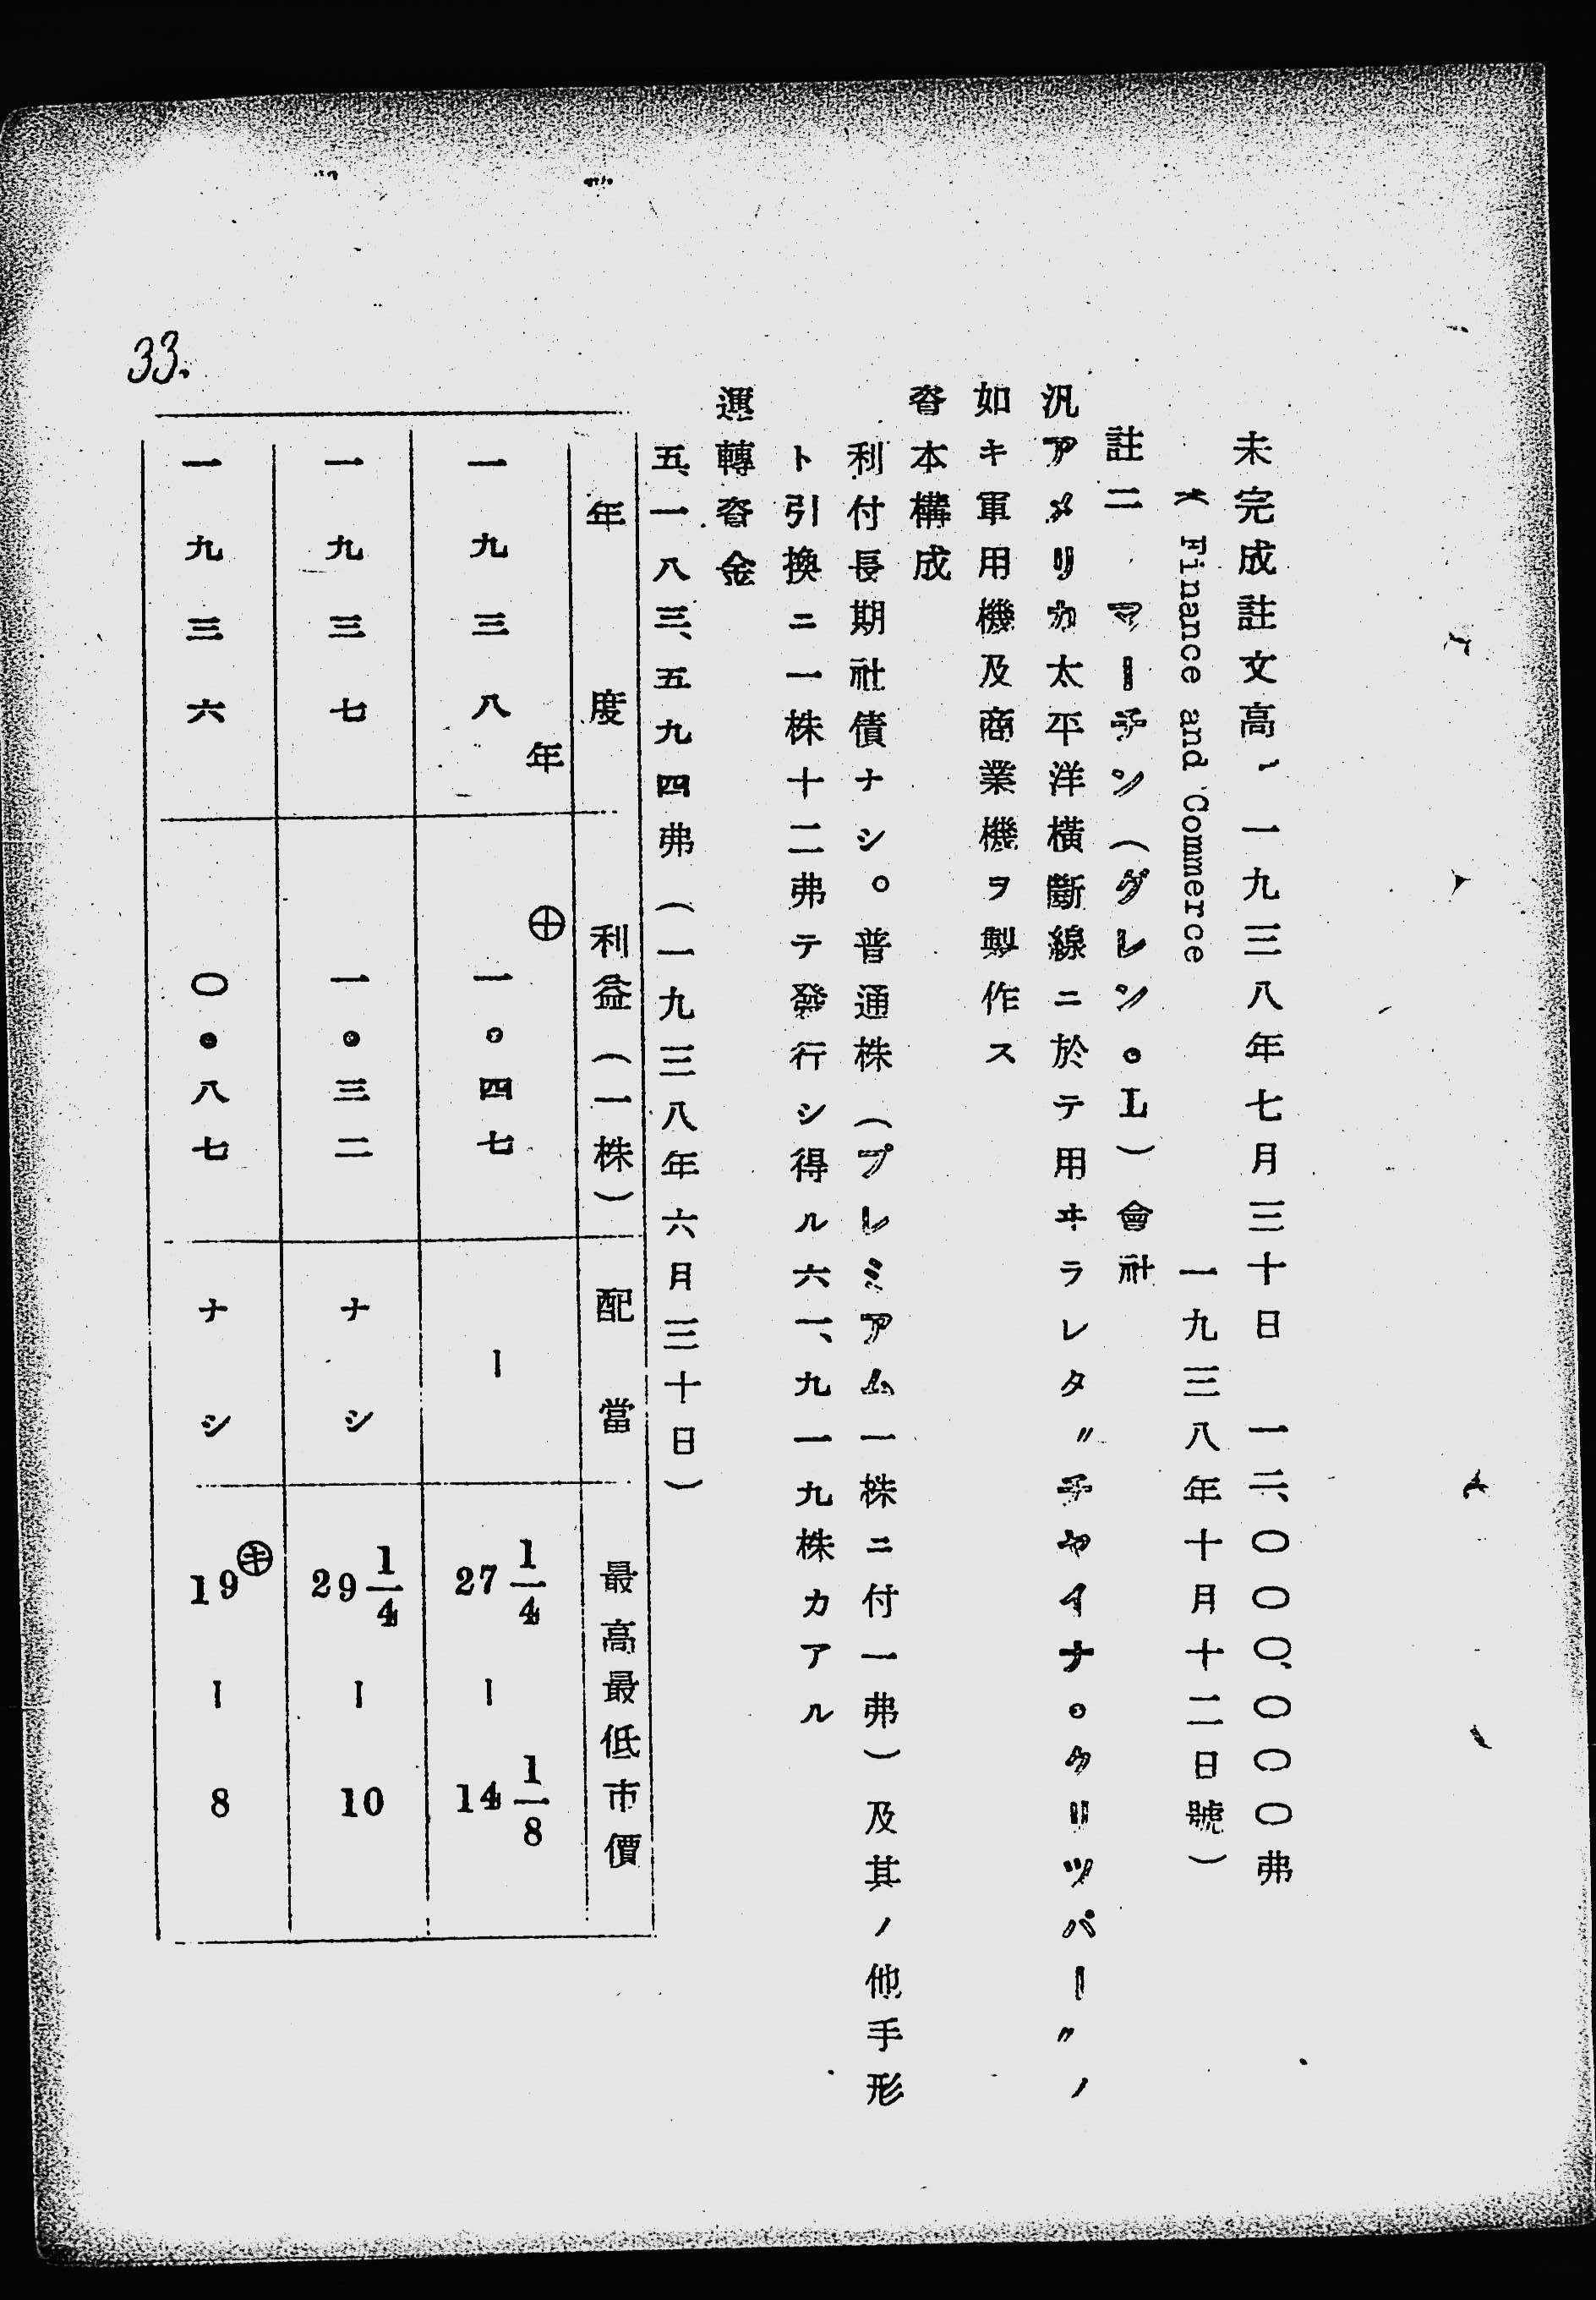 未完成註文高、一九三八年七月三十日　一二、〇〇〇、〇〇〇弗
（Finance and Commerce　一九三八年十月十二日號）
註二　マーチン（グレン。L）會社
汎アメリカ太平洋橫斷線ニ於テ用ヰラレタ〃チヤイナ。クリツパー〃ノ
如キ軍用機及商業機ヲ製作ス
資本構成
利付長期社債ナシ。普通株（プレミアム一株ニ付一弗）及其ノ他手形
ト引換ニ一株十二弗テ發行シ得ル六一、九一九株カアル
運轉資金
五、一八三、五九四弗（一九三八年六月三十日）
年度　利益（一株）　配當　最高最低市價
一九三八年　㊉一。四七　ー　27 1/4 ー 14 1/8
一九三七　一。三二　ナシ　29 1/4 ー 10
一九三六　〇。八七　ナシ　19 ー 8
33.